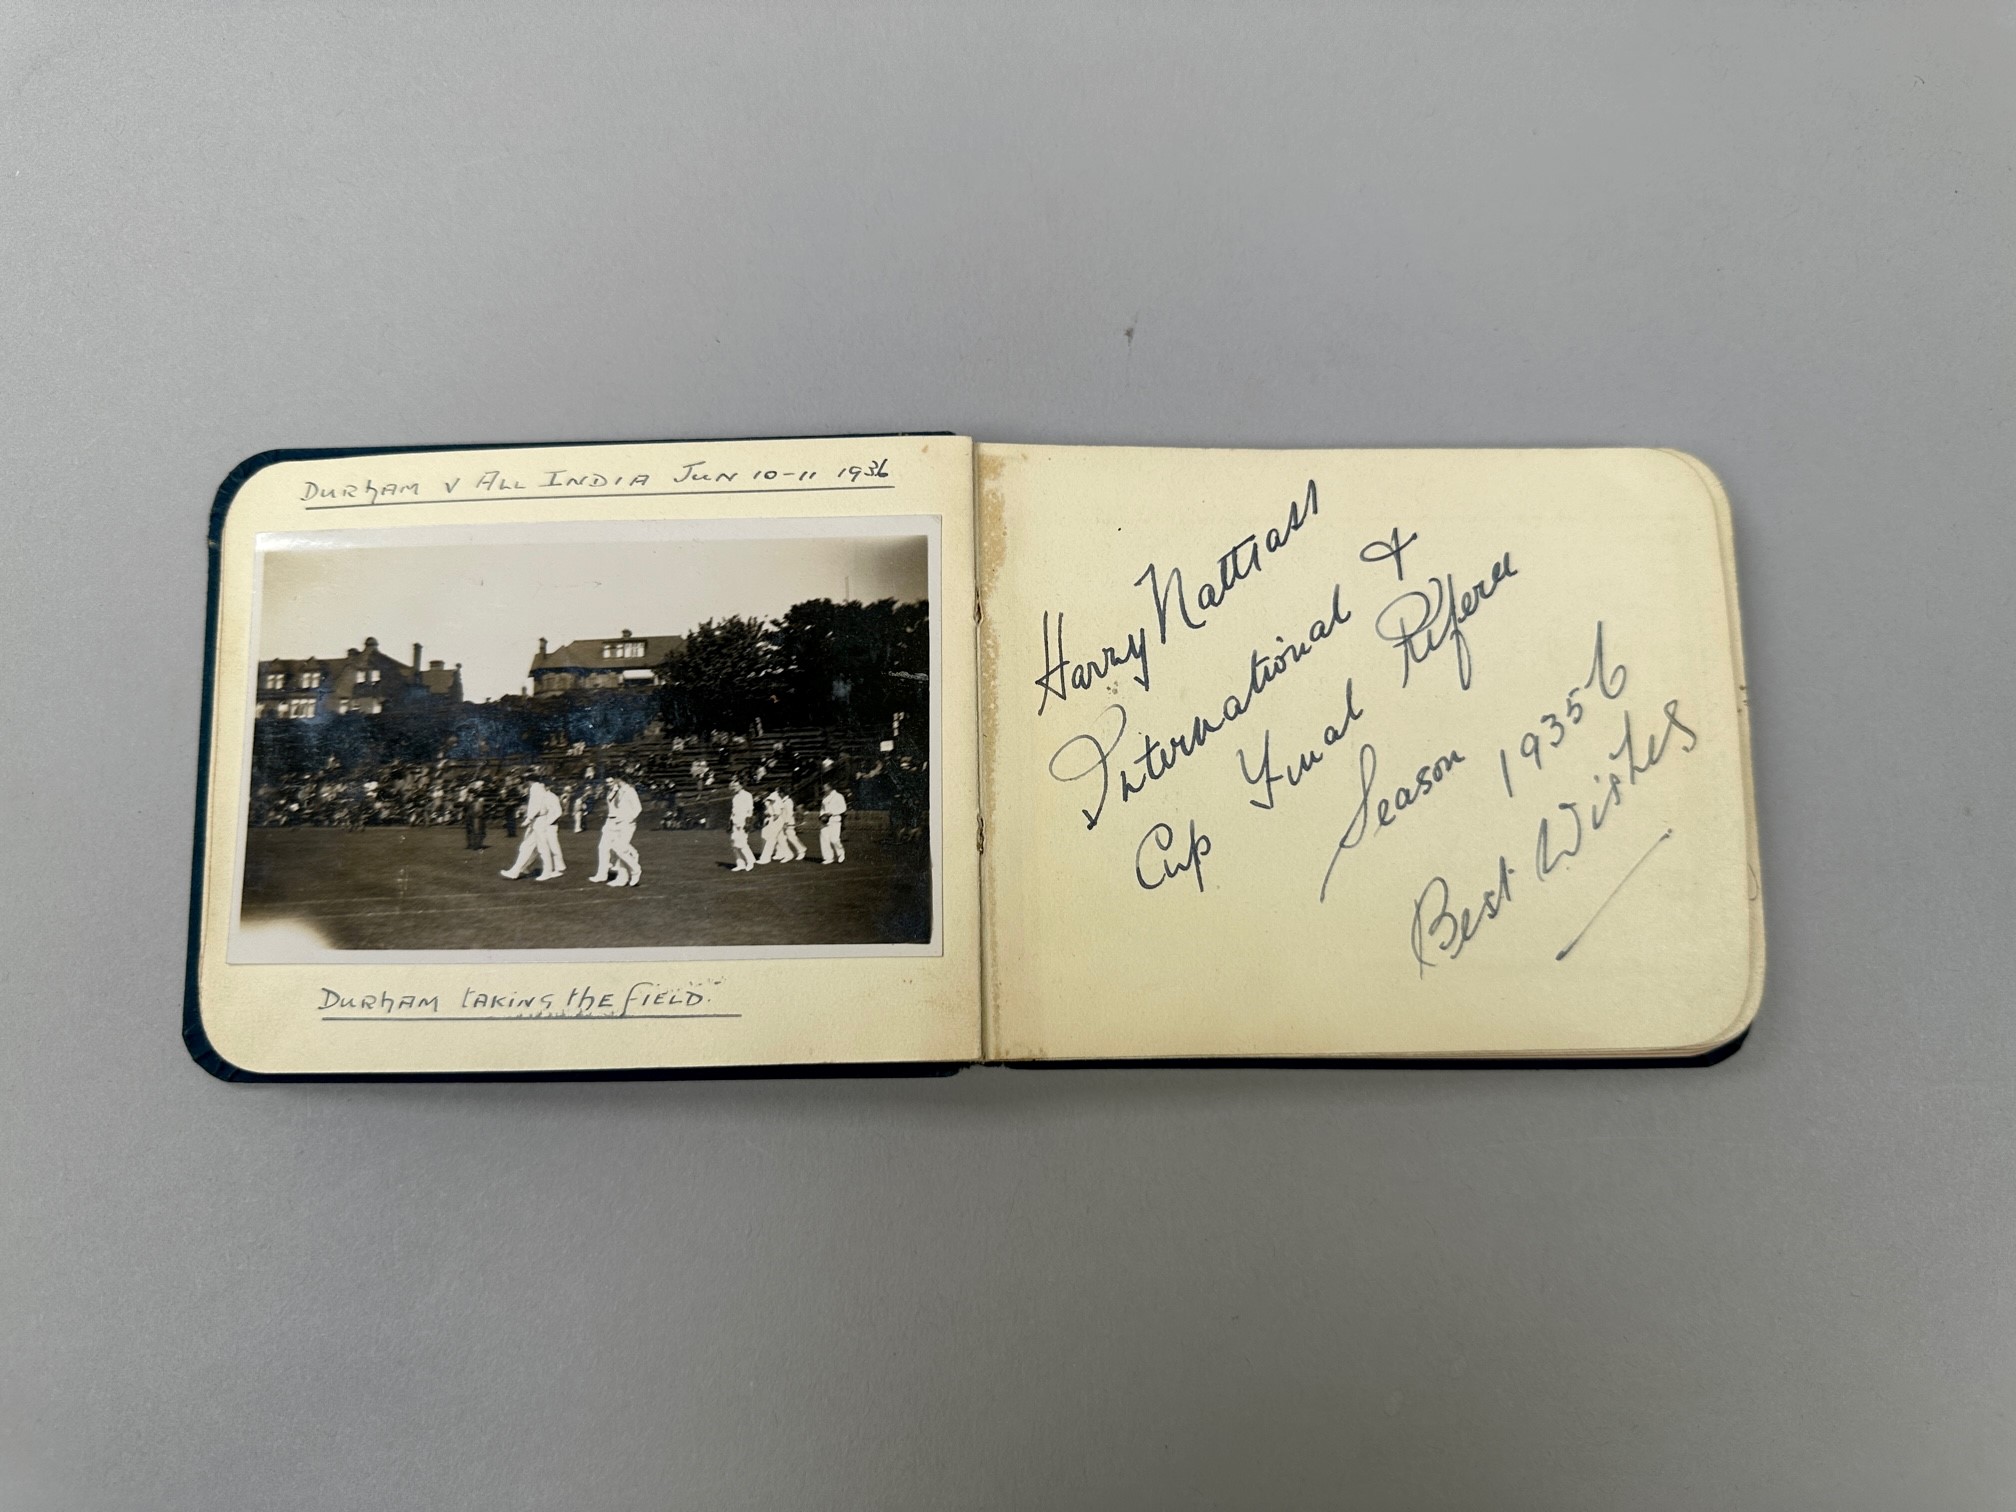 DURHAM V ALL INDIA JUN 10-11 1936
DURHAM TAKING THE FIELD.
Harry Nattrass
International &
Cup Final Referee
Season 1935 6
Best Wishes